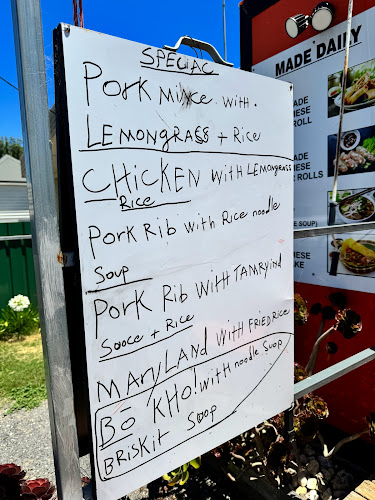 SPECIAL
PORK MINCE WITH.
LEMONGRASS + RICE
CHICKEN WITH LEMONGRASS
RICE
PORK RIB WITH RICE NOODLE
SOUP
PORK RIB WITH TAMRYIND
SOOCE + RICE
MARYLAND WITH FRIED RICE
BO KHO! WITH NOODLE SUOP
BRISKIT SOOP
MADE DAILY
ADE
NESE
ROLL
ADE
NESE
ROLLS
SOUP)
NESE
AKE